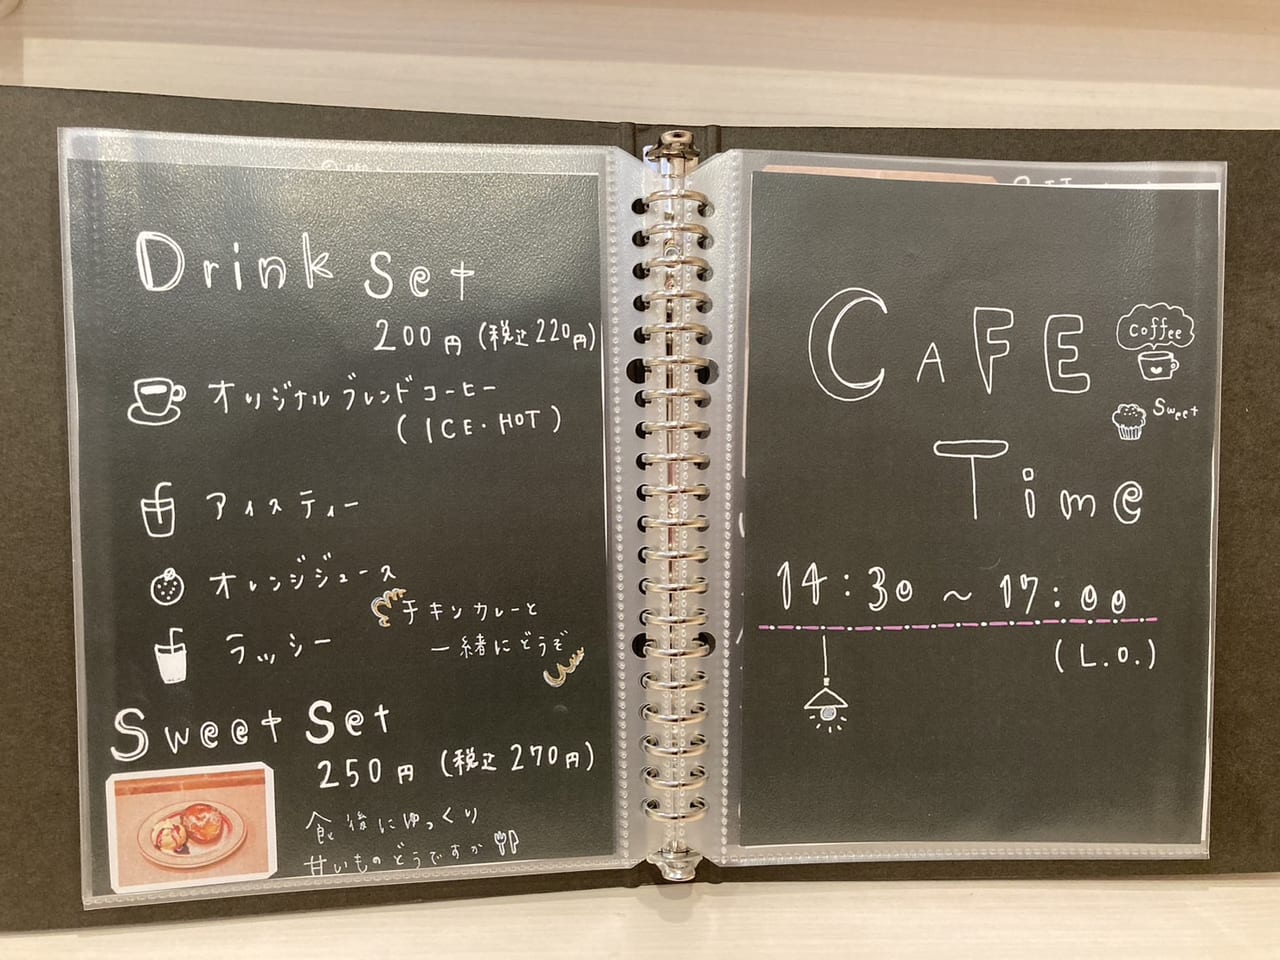 Drink Set
200円 (税込220円)
オリジナルブレンドコーヒー
(ICE・HOT)
アイスティー
オレンジジュース
チキンカレーと
一緒にどうぞ
ラッシー
Sweet Set
250円 (税込270円)
食後にゆっくり
甘いものどうですか
CAFE
Coffee
Sweet
Time
14:30~17:00
(L.O.)